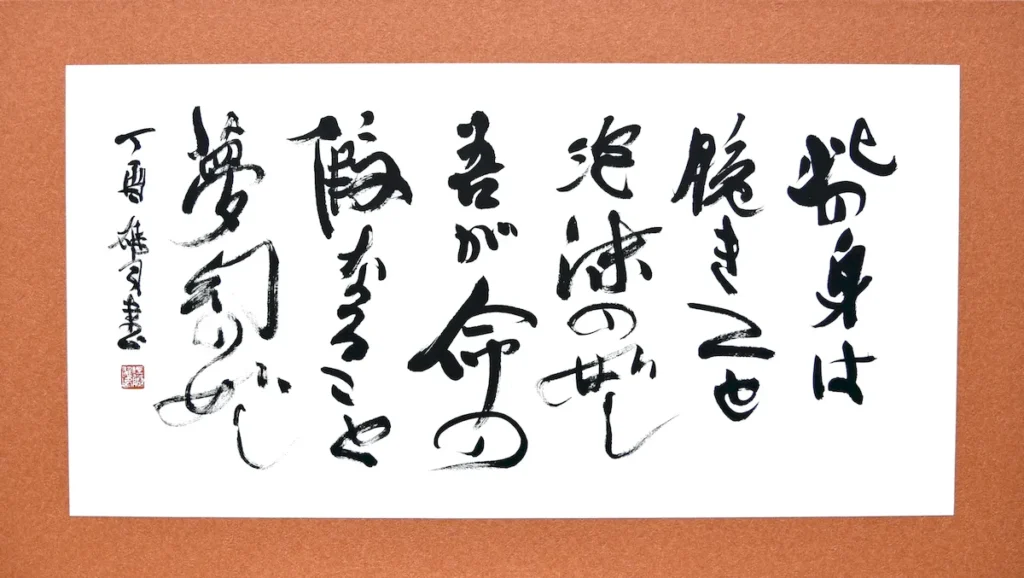 此の身は
脆きこと
泡沫の如し
吾が命の
假なること
夢幻の如し
丁酉 書